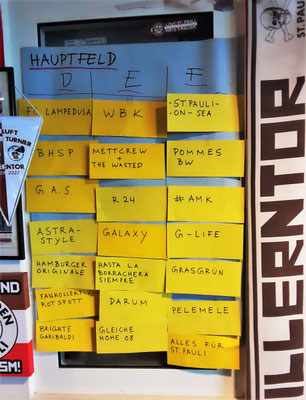 HAUPTFELD
D E F
FC LAMPEDUSA
BHSP
G.A.S.
ASTRA-
STYLE
HAMBURGER
ORIGINALE
FANKOLLEKTIV
ROT SPOTT
BRIGATE
GARIBALDI
WBK
METTCREW
+
THE WASTED
R24
GALAXY
HASTA LA
BORRACHERA
SIEMPRE
DARUM
GLEICHE
HÖHE 08
-ST.PAULI-
-ON-SEA
POMMES
BW
#AMK
G-LIFE
GRASGRÜN
PELEMELE
ALLES FÜR
ST PAULI
LUFT
TURNIER
ERNTOR
2022
ILLERNTOR
ST. PAULI